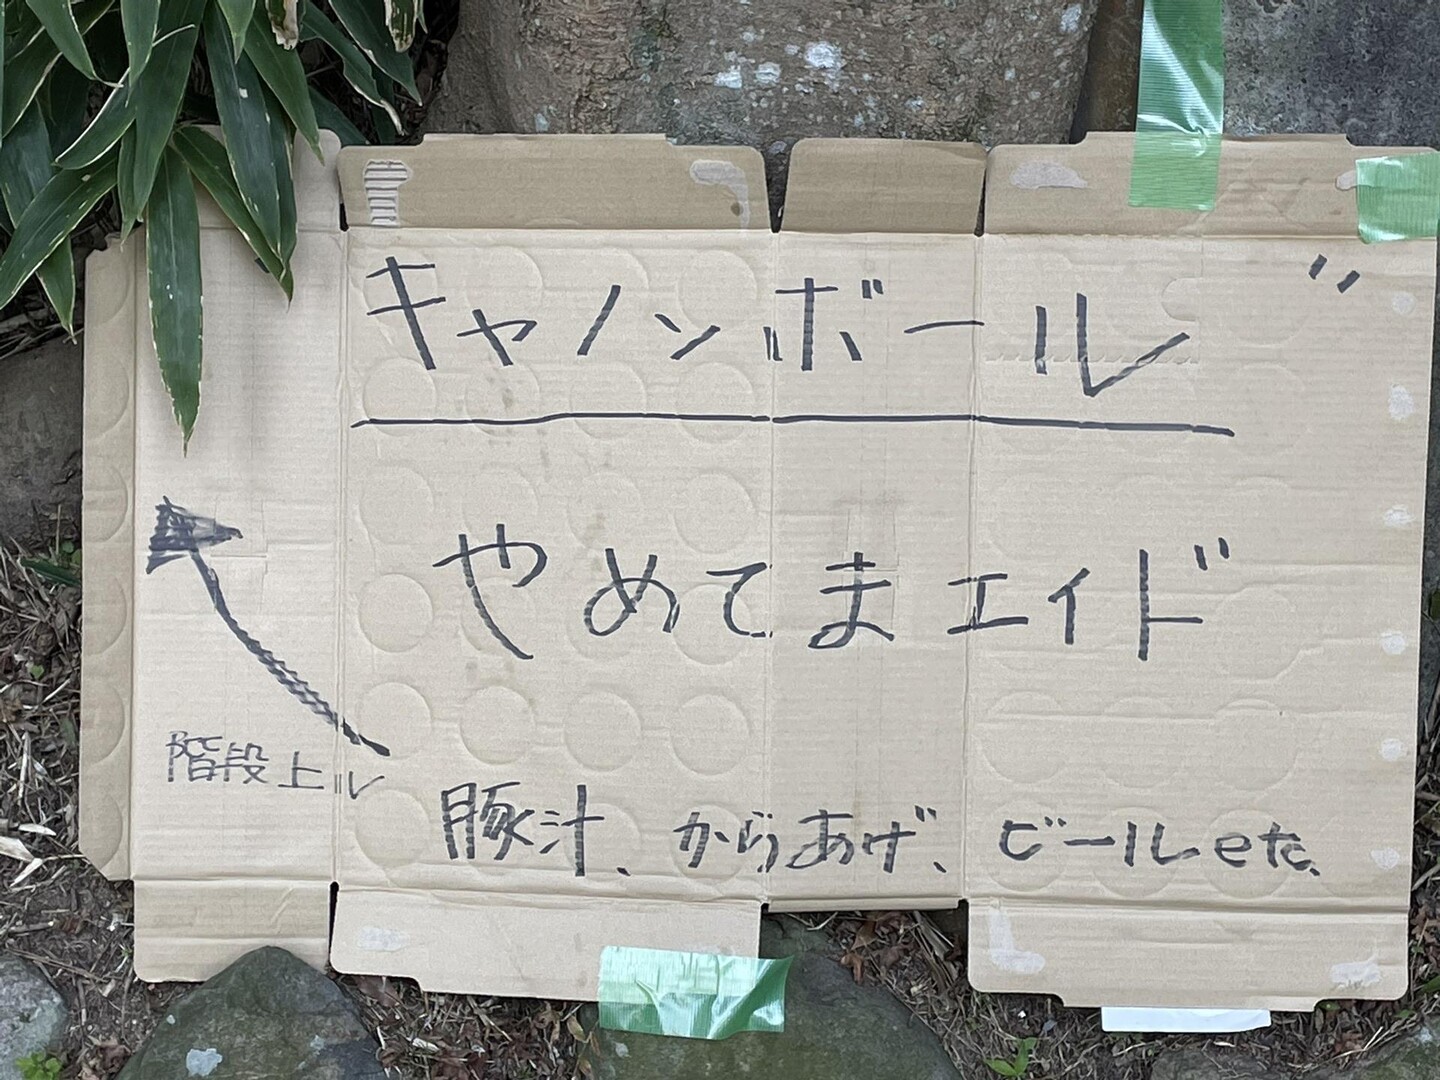 キャノンボール〃
やめてまエイド
階段上ル
豚汁、からあげ、ビールetc、